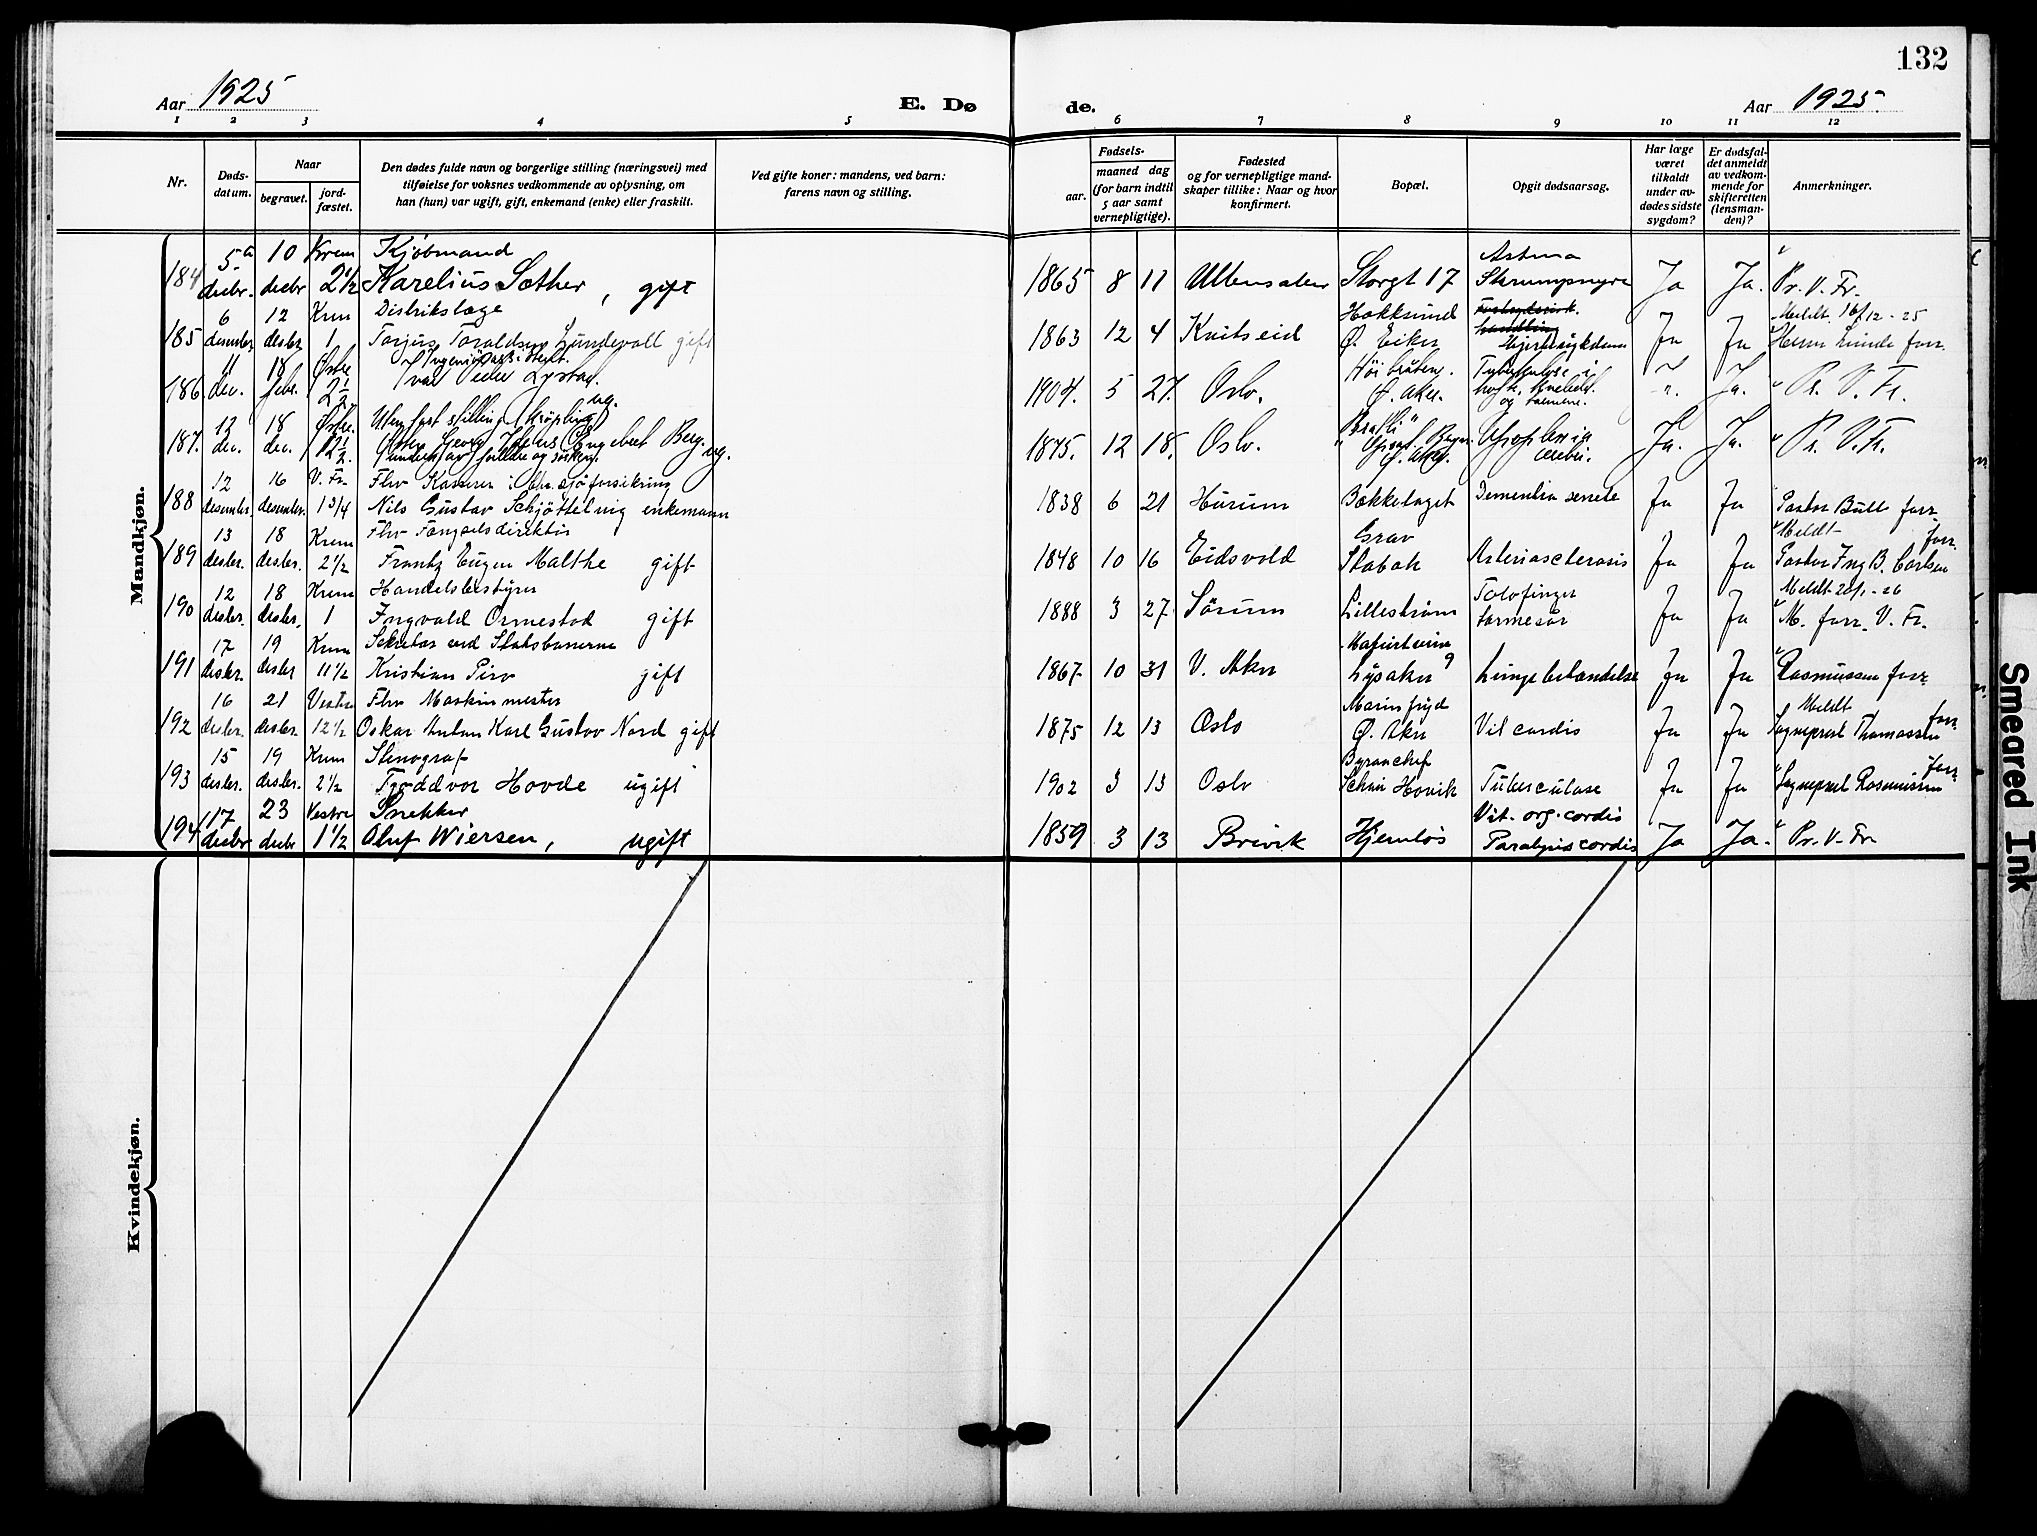 132
Aar 1925
E. Dø
de.
Aar 1925.
1 2 3 4 5 6 7 8 9 10 11 12
Nr.
Døds-
datum.
Naar
begravet.
jord-
fæstet.
Den dødes fulde navn og borgerlige stilling (næringsvei) med
tilføielse for voksnes vedkommende av oplysning, om
han (hun) var ugift, gift, enkemand (enke) eller fraskilt.
Ved gifte koner: mandens, ved barn:
farens navn og stilling.
Fødsels-
aar.
maaned dag
(for barn indtil
5 aar samt
vernepligtige).
Fødested
og for vernepligtige mand-
skaper tillike: Naar og hvor
konfirmert.
Bopæl.
Opgit dødsaarsag.
Har læge
været
tilkaldt
under av-
dødes sidste
sygdom?
Er dødsfal-
det anmeldt
av vedkom-
mende for
skifteretten
(lensman-
den)?
Anmerkninger.
Mandkjøn.
5 10 Krem Kjøbmand Astma
184 desbr. desbr 2 1/2 Karelius Sæther, gift 1865 8 11 Ullensaker Storgt 17 Skrumpnyre Ja Ja. Pr. V. Fr.
6 12 Krem Distriktslæge Hokksund Meldt 16/12-25
185 desember desbr 1 Torjus Taraldsen Lundevall gift 1863 12 4 Kviteseid Ø. Eiker Hjertesykdom Ja Ja Herm Lunde forr.
11 18 Østre
186 dec. febr. 2 1/2 Lystad. 1904. 5 27. Oslo. Ø. Aker. Tuberkulose i Ja. Pr. V. Fr.
13 18 Østre. Uten fast stilling (krøpling) ug.
187. dec. dec. 12 1/2 Georg Engebret Berg. ug. 1875. 12 18. Oslo. Ø. Aker. Apoplexia cerebri. Ja. Ja. Pr. V. Fr.
(underh. av forældre og søsken)
12 16 V. Fr. Fhv Kasserer i sjøforsikring
188 desember desember. 1 3/4 Nils Gustav Schjøtthelvig enkemann 1838 6 21 Hurum Bækkelaget Dementia senile Ja Ja Pastor Bull forr
13 18 Krem Fhv Fængselsdirektør Grav Meldt
189 desbr. desbr. 2 1/2 Frantz Eugen Malthe gift 1848 10 16 Eidsvold Stabæk Arteriosclerosis Ja Ja Pastor Ing B. Carlsen forr.
12 18 Krem Handelsbestyrer Tolvfinger Meldt 26/1-26
190 desbr. desbr. 1 Ingvald Ormestad gift 1888 3 27 Sørum Lillestrøm tarmesår Ja Ja M. forr. V. Fr.
17 19 Krem Sekretær ved Statsbanerne
191 desbr. desbr 11 1/2 Kristian Piro gift 1867 10 31 V. Aker Lysaker Lungebetændelse Ja Ja Rasmussen forr.
16 21 Vestre Fhv Maskinmester Marinfryd Meldt
192 desbr. desbr. 12 1/2 Oskar Anton Karl Gustav Nord gift 1875 12 13 Oslo Ø. Aker Vit cordis Ja Ja Sogneprest Thomassen forr
15 19 Krem Stenograf Byraachef
193 desbr. desbr. 2 1/2 Hovde ugift 1902 3 13 Oslo Høvik Tuberculose Ja Ja Sogneprest Rasmussen forr
17 23 Vestre Snekker Vit. org. cordis
194 desbr desbr 1 1/2 Oluf Wiersen, ugift 1859 3 13 Brevik Hjemløs Paralysis cordis Ja Ja. Pr. V. Fr
Kvindekjøn.
Smeared Ink